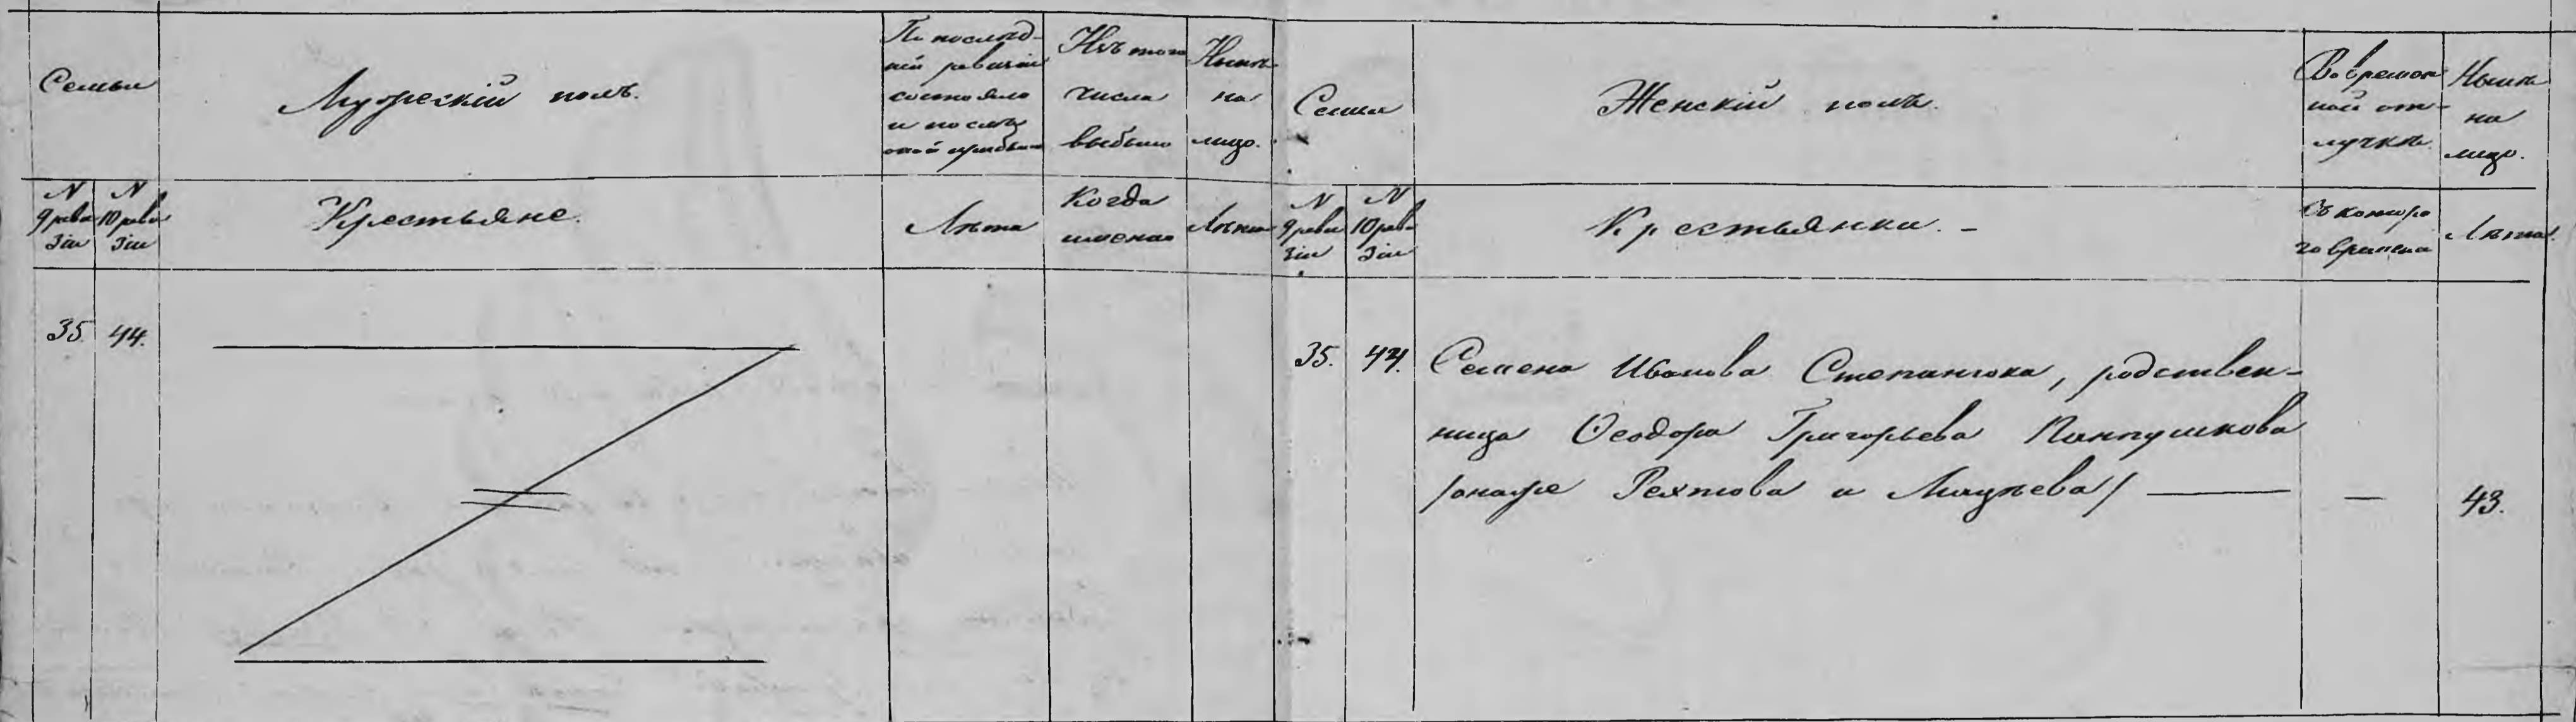 Семьи
Мужескій полъ.
По послѣд-
ней ревизіи
состояло
и послѣ
оной прибыло
Изъ того
числа
выбыло
Нынѣ
на
лицо.
Семьи
Женскій полъ.
Во времен
ной от-
лучкѣ.
Нынѣ
на
лицо.
N
9 реви
зіи
N
10 реви
зіи
Крестьяне.
Лѣта
Когда
именно
Лѣта
N
9 реви
зіи
N
10 реви
зіи
Крестьянки. -
Съ которо
го времени
Лѣта.
35. 44.
35. 44. Семена Иванова Степанюка, родствен-
ница Ѳеодора Григорьева Пампушкова
/онаже и / — — 43.